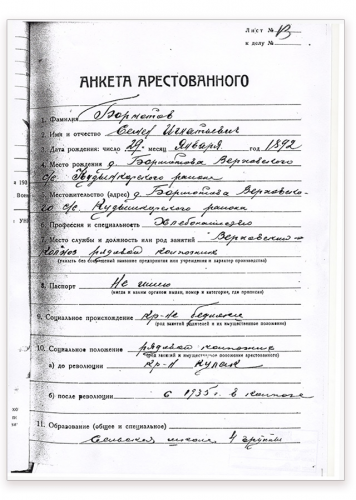 Лист №
к делу №
АНКЕТА АРЕСТОВАННОГО
1. Фамилия Бормотов
2. Имя и отчество Семен Игнатьевич
3. Дата рождения: число 29 месяц Января год 1892
4. Место рождения д. Бормотова Верховского
с/с. Кудымкарского района
5. Местожительство (адрес) д. Бормотова Верховско-
го с/с. Кудымкарского района
6. Профессия и специальность Хлебопашество
7. Место службы и должность или род занятий Верховский
колхоз рядовой колхозник
8. Паспорт Не имею
(когда и каким органом выдан, номер и категория, где прописан)
9. Социальное происхождение кр-не бедняки
(род занятий родителей и их имущественное положение)
10. Социальное положение рядовой колхозник
(род занятий и имущественное положение арестованного)
а) до революции кр-н кулак
б) после революции с 1935 г. в колхозе
11. Образование (общее и специальное)
Сельская школа 4 группы